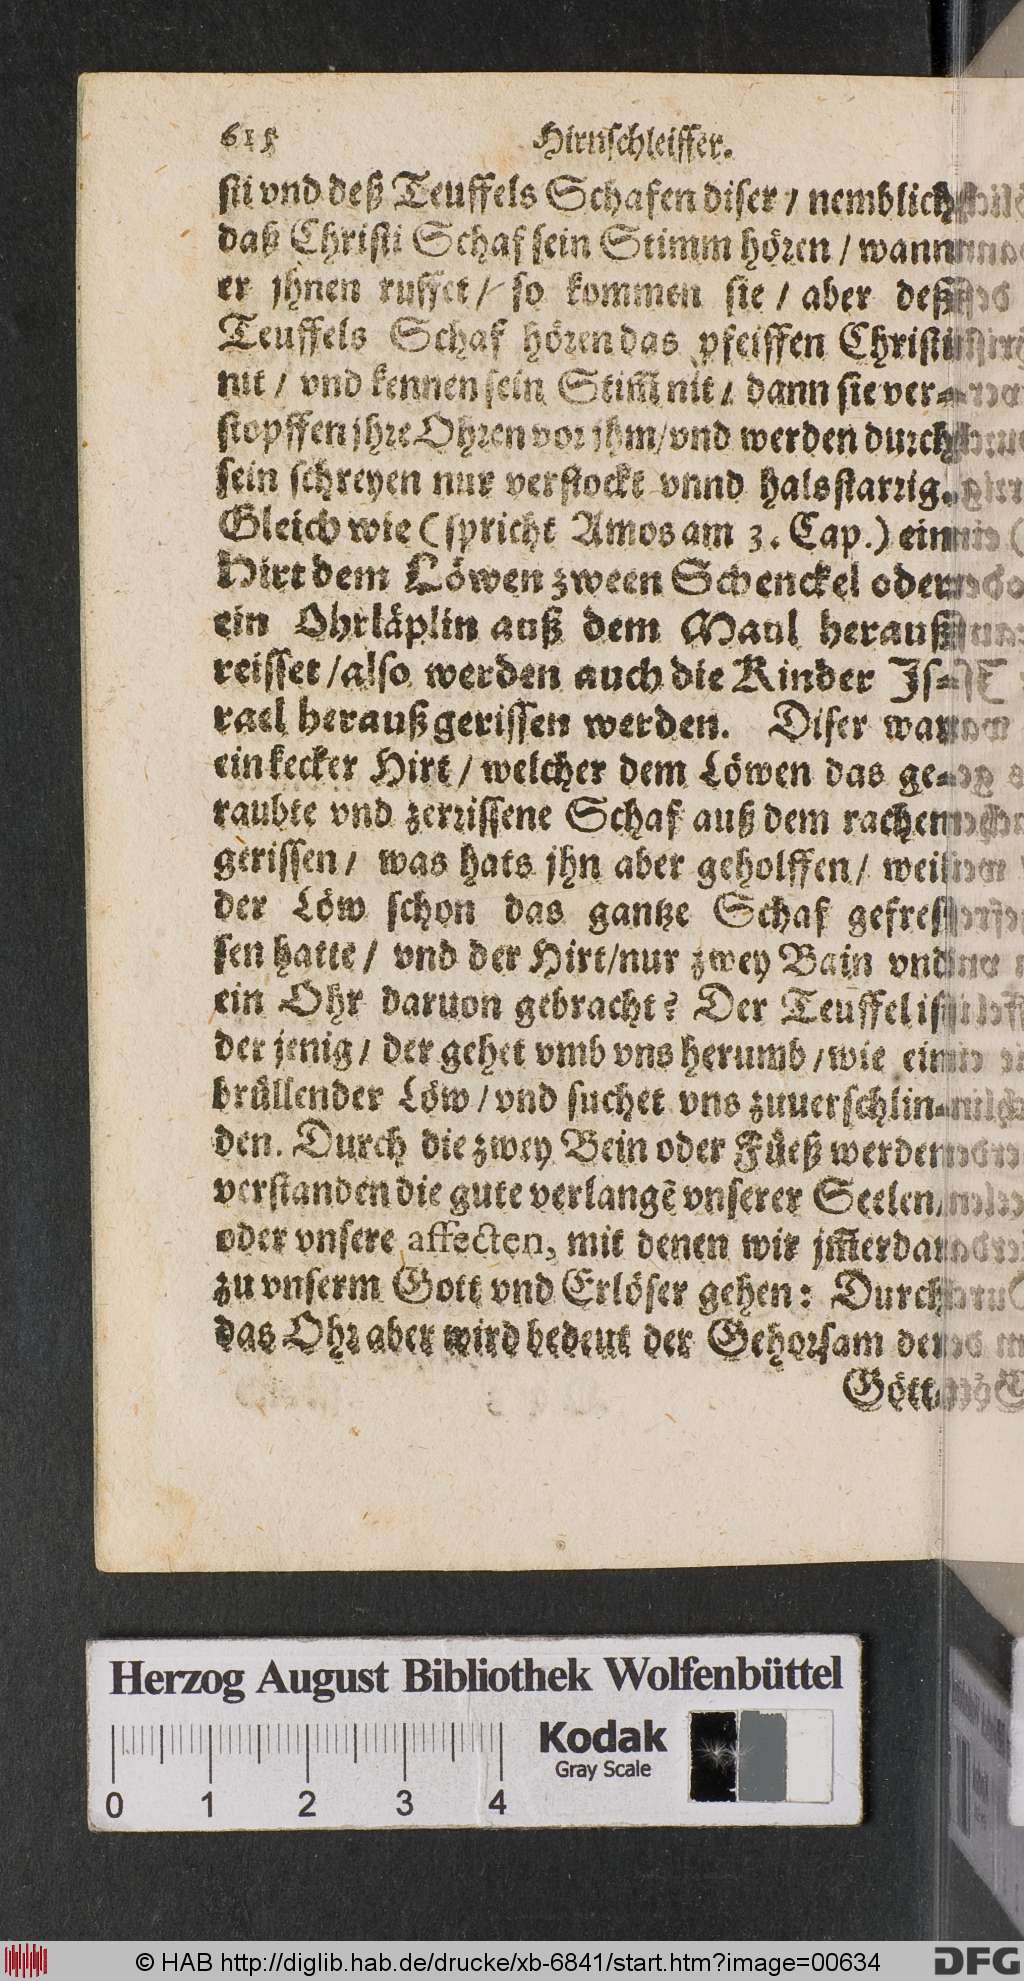 615 Hirnschleiffer.
sti vnd deß Teuffels Schafen diser / nemblich
daß Christi Schaf sein Stimm hören / wann
er jhnen ruffet / so kommen sie / aber deß
Teuffels Schaf hören das pfeiffen Christi
nit / vnd kennen sein Stim̃ nit / dann sie ver-
stopffen jhre Ohren vor jhm / vnd werden durch
sein schreyen nur verstockt vnnd halsstarrig.
Gleich wie (spricht Amos am 3. Cap.) ein
Hirt dem Löwen zween Schenckel oder
ein Ohrläplin auß dem Maul herauß
reisset / also werden auch die Kinder Js-
rael herauß gerissen werden. Diser war
ein kecker Hirt / welcher dem Löwen das ge-
raubte vnd zerrissene Schaf auß dem rachen
gerissen / was hats jhn aber geholffen / weil
der Löw schon das gantze Schaf gefres-
sen hatte / vnd der Hirt / nur zwey Bain vnd
ein Ohr daruon gebracht? Der Teuffel ist
der jenig / der gehet vmb vns herumb / wie ein
brüllender Löw / vnd suchet vns zuuerschlin-
den. Durch die zwey Bein oder Füeß werden
verstanden die gute verlangẽ vnserer Seelen /
oder vnsere affecten, mit denen wir jm̃erdar
zu vnserm Gott vnd Erlöser gehen: Durch
das Ohr aber wird bedeut der Gehorsam der
Gött-
Herzog August Bibliothek Wolfenbüttel
Kodak
Gray Scale
0 1 2 3 4
© HAB http://diglib.hab.de/drucke/xb-6841/start.htm?image=00634
DFG